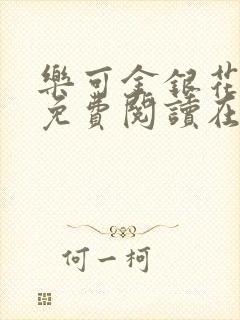 樂可金銀花
免費閱讀在
何一柯